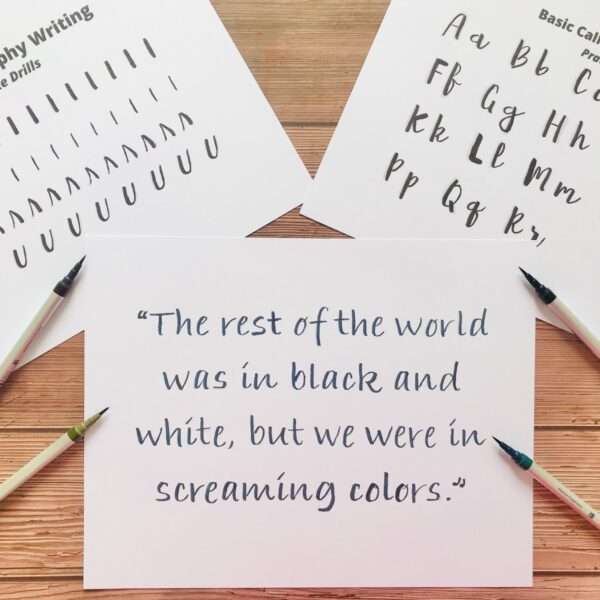 phy Writing
Drills
Basic
Aa Bb
Ff Gg Hh
Kk Ll Mm
Pp Qq Rr,
“The rest of the world
was in black and
white, but we were in
screaming colors.”